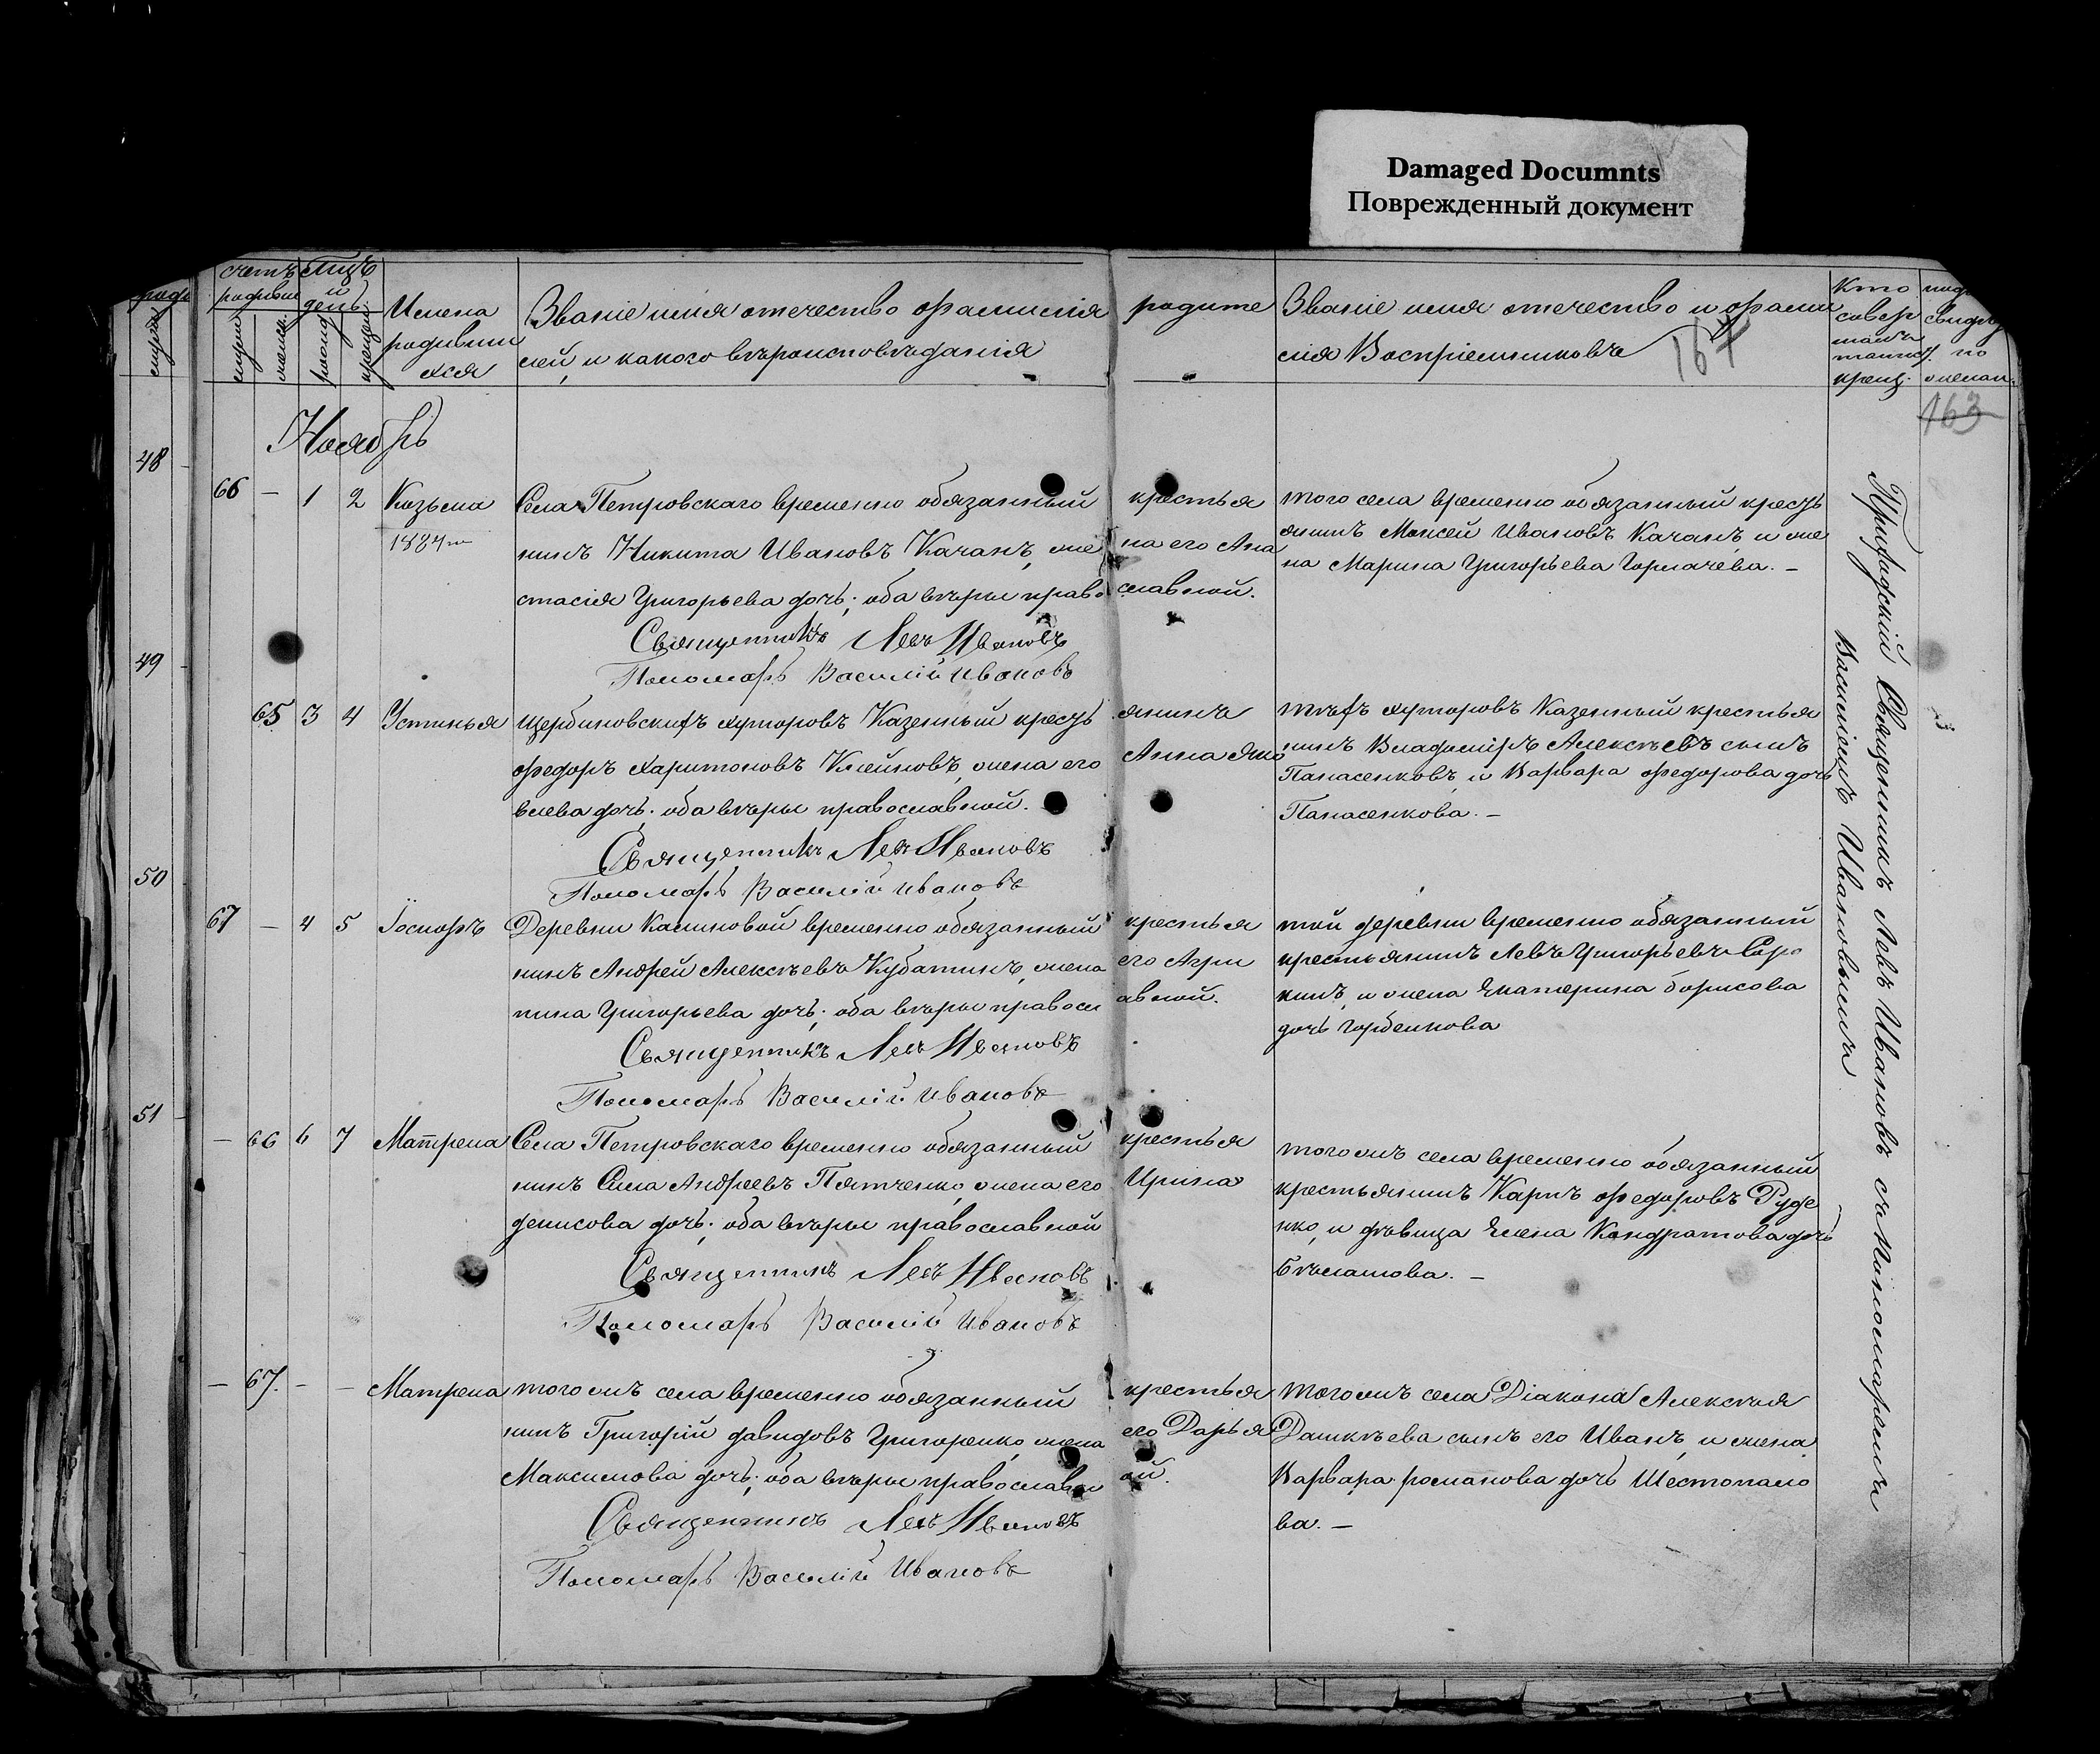 Damaged Documnts
Поврежденный документ
счетъ
родивш
мѣсяцъ
и
день
рожд
крещен.
Имена
родивши
хся
Званіе имя отечество фамилія родите
лей, и какого вѣроисповѣданія
Званіе имя отечество и фами
лія Воспріемниковъ
167
Кто
совер
шалъ
таинст.
крещ.
163
Ноябрь
48
66 — 1 2 Козьма
1884
Села Петровскаго временно обязанный крестья
нинъ Никита Ивановъ Качанъ, жена его Ана
стасія Григорьева дочь; оба вѣры православной.
Священникъ Левъ Ивановъ
Пономарь Василій Ивановъ
того села временно обязанный кресть
янинъ Моисей Ивановъ Качанъ, и же
на Марина Григорьева Горлачева. —
49
65 3 4 Устинья
Щербиновскихъ хуторовъ Казенный крестьянинъ
Федоръ Харитоновъ Клейновъ, жена его Анна Яко
влева дочь; оба вѣры православной.
Священникъ Левъ Ивановъ
Пономарь Василій Ивановъ
тѣхъ хуторовъ Казенный крестья
нинъ Владоміръ Алексѣевъ сынъ
Панасенковъ, и Варвара Федорова дочь
Панасенкова. —
50
67 — 4 5 Іосифъ
Деревни Калиновой временно обязанный крестья
нинъ Андрей Алексѣевъ Кубатинъ, жена его Агри
пина Григорьева дочь; оба вѣры православной.
Священникъ Левъ Ивановъ
Пономарь Василій Ивановъ
той деревни временно обязанный
крестьянинъ Левъ Григорьевъ Соро
кинъ, и жена Екатерина Борисова
дочь Горбенкова
51
— 66 6 7 Матрена
Села Петровскаго временно обязанный крестья
нинъ Сила Андреевъ Пятченко, жена его Ирина
Денисова дочь; оба вѣры православной
Священникъ Левъ Ивановъ
Пономарь Василій Ивановъ
тогожъ села временно обязанный
крестьянинъ Карпъ Федоровъ Руде
нко, и дѣвица Елена Кондратова дочь
Бѣлашова. —
— 67. — — Матрена
тогожъ села временно обязанный крестья
нинъ Григорій Давидовъ Григоренко, жена его Дарья
Максимова дочь; оба вѣры православной.
Священникъ Левъ Ивановъ
Пономарь Василій Ивановъ
тогожъ села Діакона Алексѣя
Дашкѣева сынъ его Иванъ, и жена
Варвара Романова дочь Шестопало
ва. —
Приходскій Священникъ Левъ Ивановъ съ Пономаремъ
Василіемъ Ивановымъ